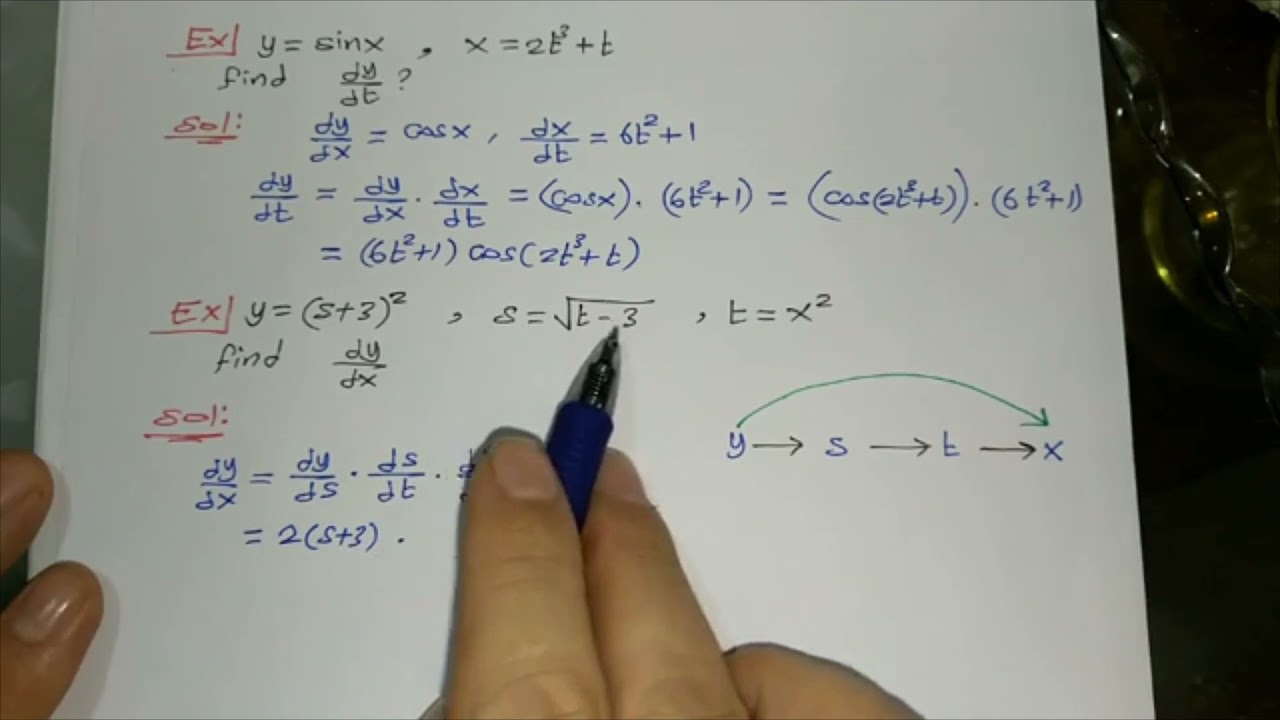 Ex| y = sinx , x = 2t³ + t
find dy/dt ?
Sol: dy/dx = cosx , dx/dt = 6t² + 1
dy/dt = dy/dx · dx/dt = (cosx) · (6t²+1) = (cos(2t³+t)) · (6t²+1)
= (6t²+1) cos(2t³+t)
Ex| y = (s+3)² , s = √(t-3) , t = x²
find dy/dx
Sol:
y → s → t → x
dy/dx = dy/ds · ds/dt ·
= 2(s+3) ·